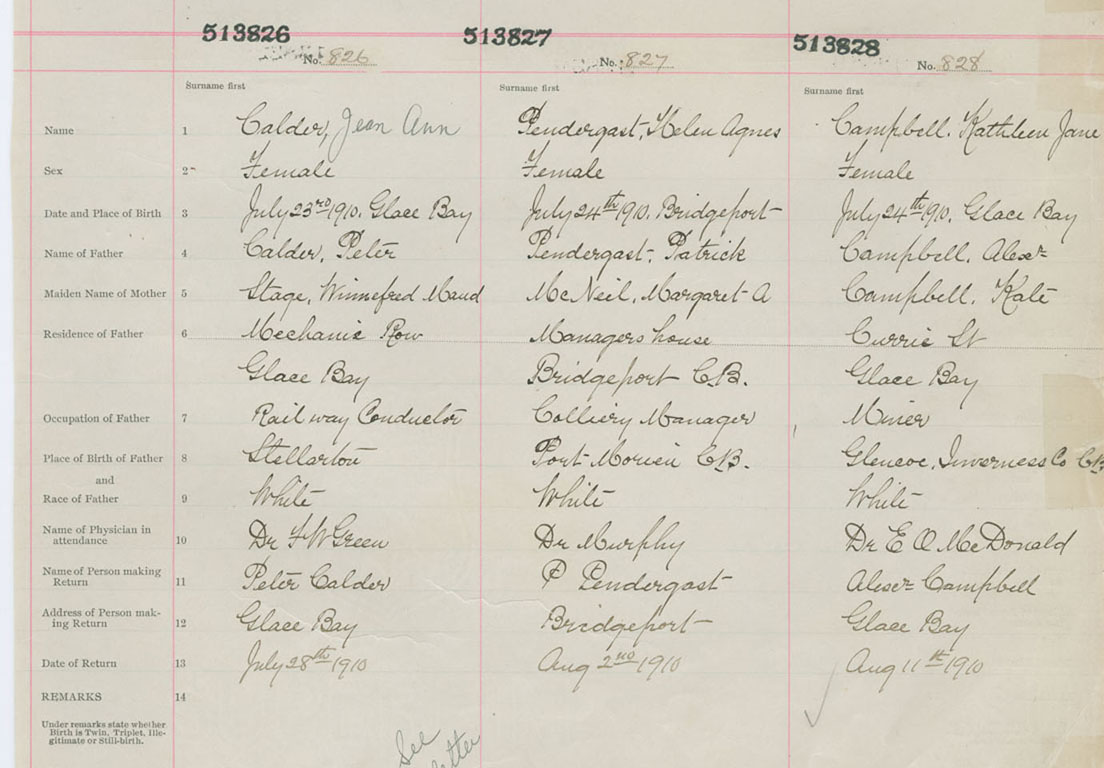 513826 513827 513828
No. 826 No. 827 No. 828
Surname first Surname first Surname first
Name 1 Calder, Jean Ann Pendergast, Helen Agnes Campbell. Kathleen Jane
Sex 2 Female Female Female
Date and Place of Birth 3 July 23rd 1910. Glace Bay July 24th 1910. Bridgeport July 24th 1910. Glace Bay
Name of Father 4 Calder, Peter Pendergast, Patrick Campbell. Alexr
Maiden Name of Mother 5 Stage, Winnefred Maud McNeil, Margaret A Campbell. Kate
Residence of Father 6 Mechanic Row Managers house Currie St
Glace Bay Bridgeport C.B. Glace Bay
Occupation of Father 7 Railway Conductor Colliery Manager Miner
Place of Birth of Father 8 Stellarton Port Morien C.B. Glencoe, Inverness Co CB
and
Race of Father 9 White White White
Name of Physician in
attendance 10 Dr F W Green Dr Murphy Dr E O. McDonald
Name of Person making
Return 11 Peter Calder P Pendergast Alexr Campbell
Address of Person mak-
ing Return 12 Glace Bay Bridgeport Glace Bay
Date of Return 13 July 28th 1910 Aug 2nd 1910 Aug 11th 1910
REMARKS 14
Under remarks state whether
Birth is Twin, Triplet, Ille-
gitimate or Still-birth.
See